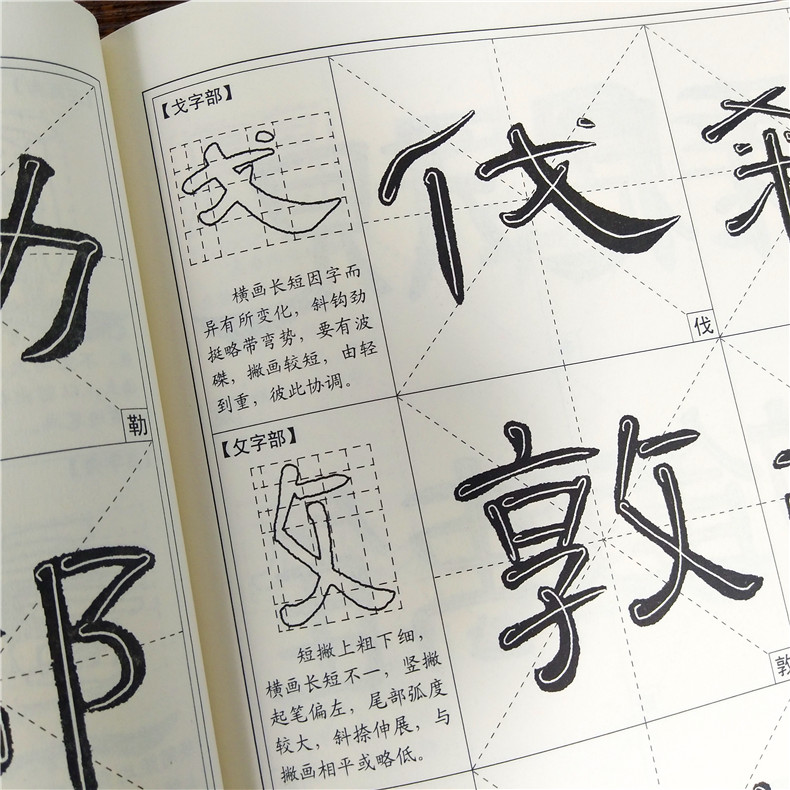 勒
【戈字部】
戈
横画长短因字而
异有所变化，斜钩劲
挺略带弯势，要有波
磔，撇画较短，由轻
到重，彼此协调。
伐
伐
【攵字部】
攵
短撇上粗下细，
横画长短不一，竖撇
起笔偏左，尾部弧度
较大，斜捺伸展，与
撇画相平或略低。
敦
敦